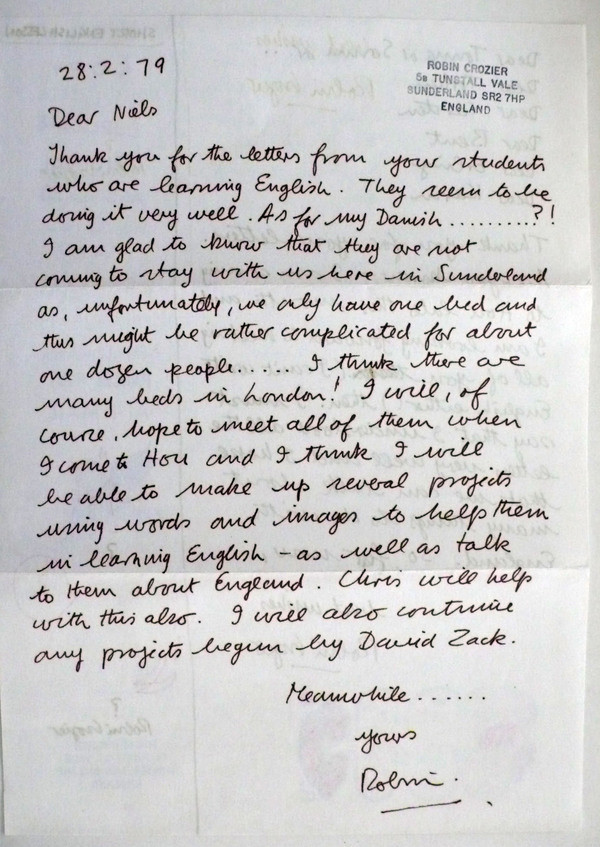 28:2:79
ROBIN CROZIER
5B TUNSTALL VALE
SUNDERLAND SR2 7HP
ENGLAND
Dear Niels
Thank you for the letters from your students
who are learning English. They seem to be
doing it very well. As for my Danish .........?!
I am glad to know that they are not
coming to stay with us here in Sunderland
as, unfortunately, we only have one bed and
this might be rather complicated for about
one dozen people..... I think there are
many beds in London! I will, of
course, hope to meet all of them when
I come to Hou and I think I will
be able to make up several projects
using words and images to help them
in learning English - as well as talk
to them about England. Chris will help
with this also. I will also continue
any projects begun by David Zack.
Meanwhile ......
yours
Robin.